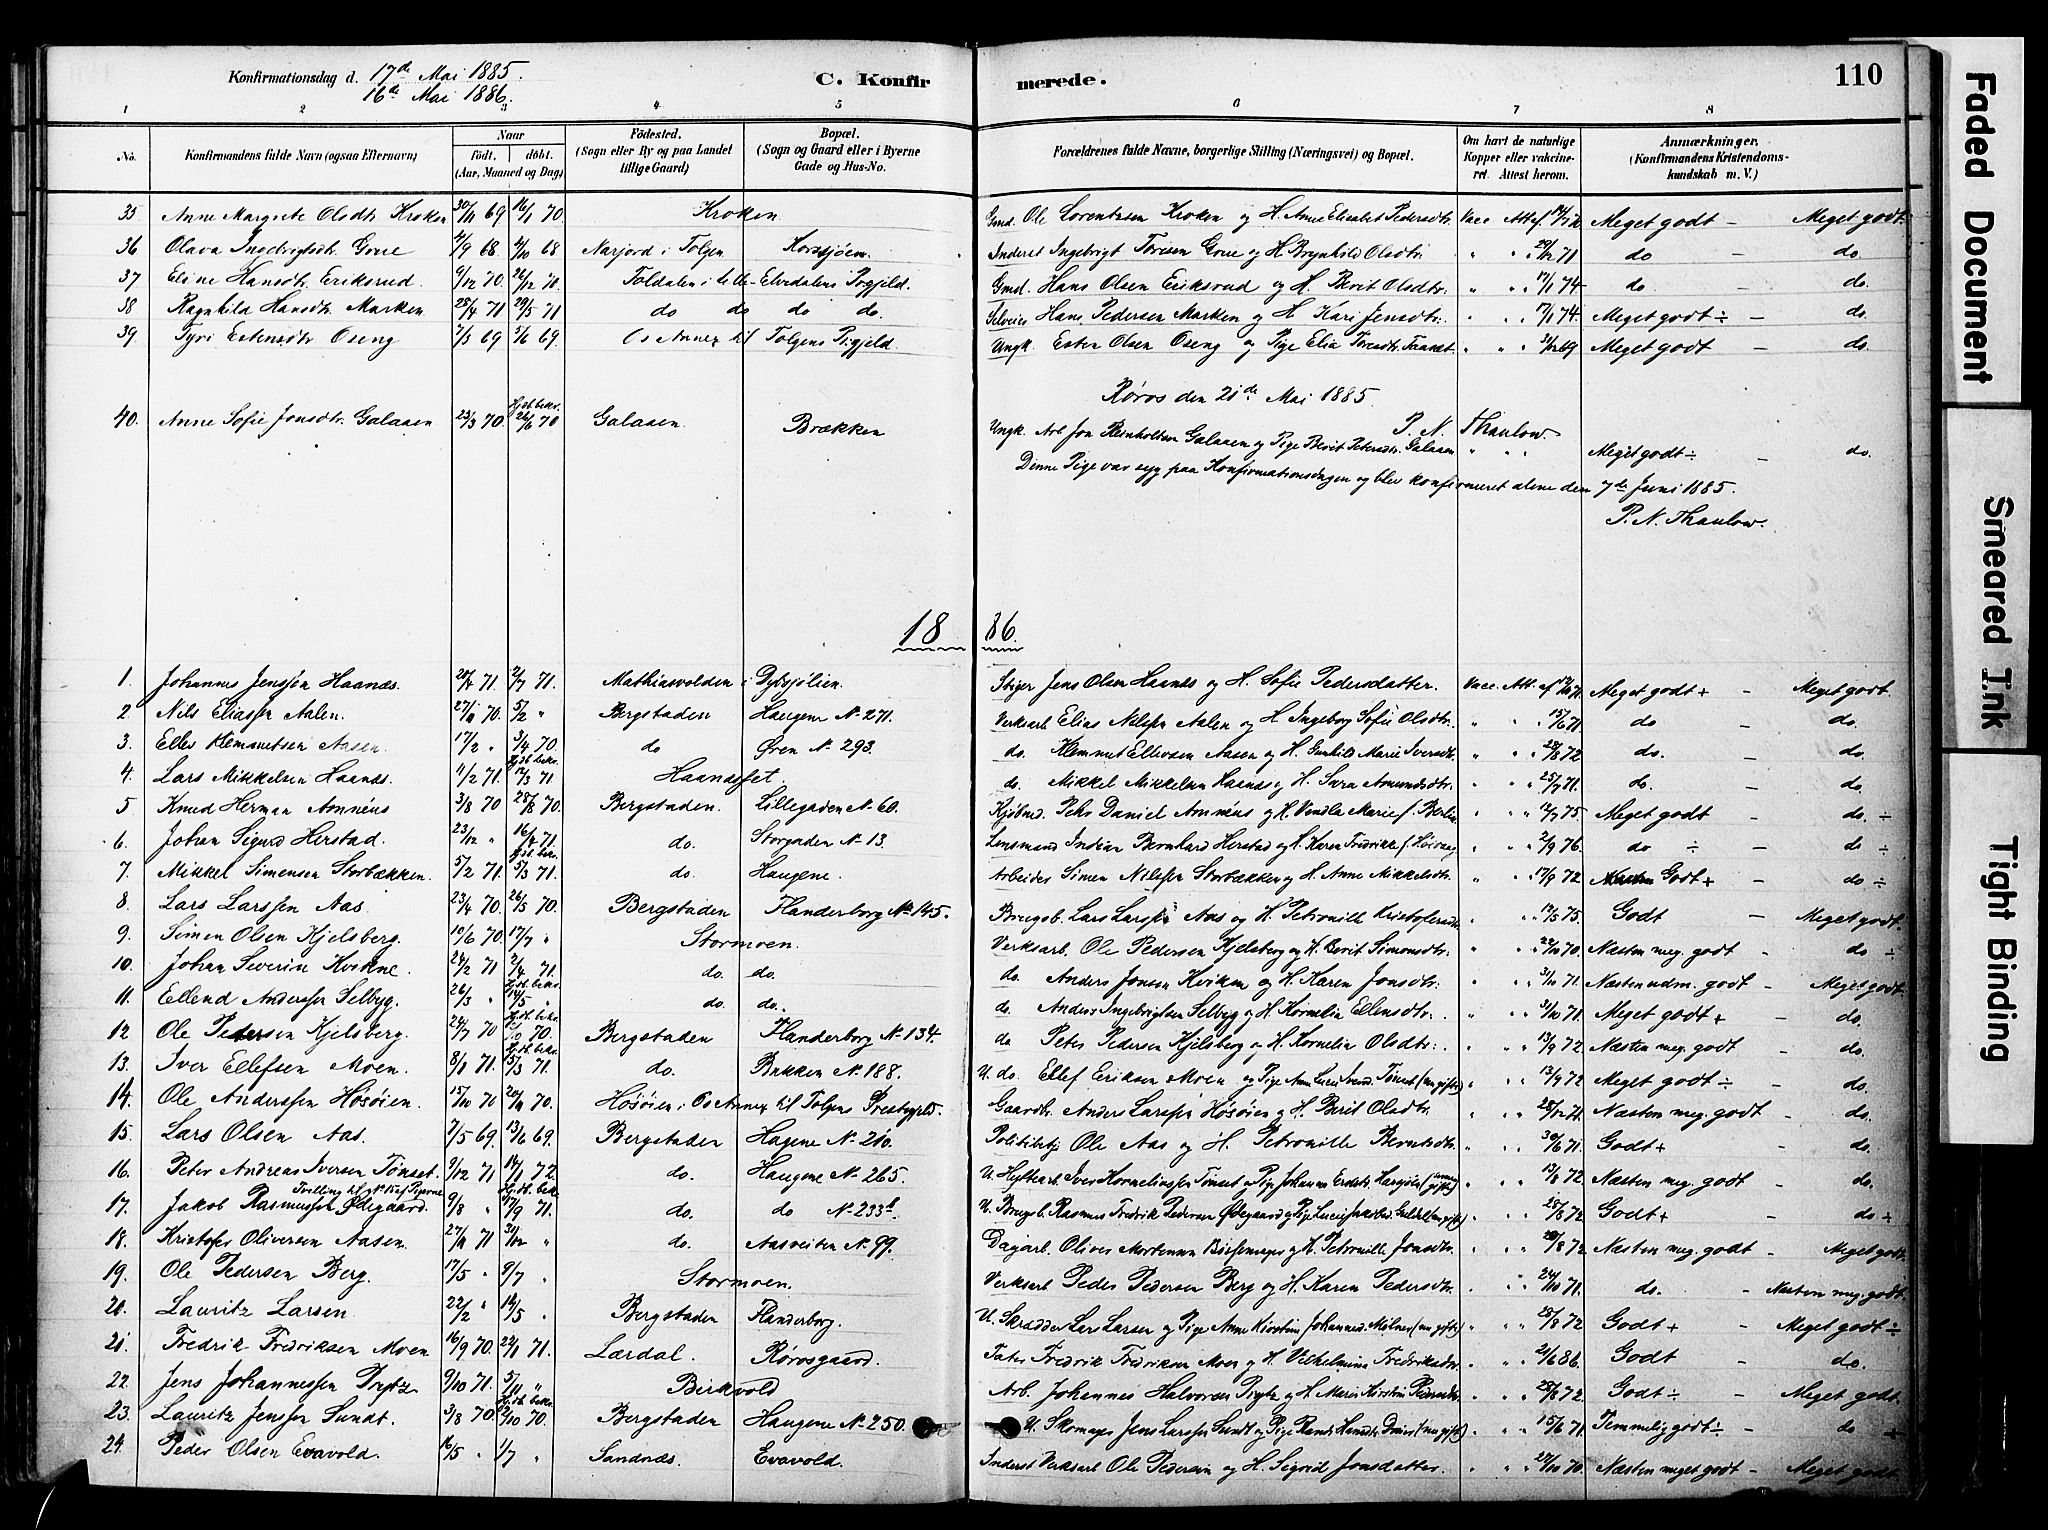 Konfirmationsdag d. 17de Mai 1885.
16de Mai 1886.
C. Konfirmerede.
110
1 2 3 4. 5 6 7 8
No.
Konfirmandens fulde Navn (ogsaa Efternavn)
Naar
födt. döbt.
(Aar, Maaned og Dag)
Födested.
(Sogn eller By og paa Landet tillige Gaard)
Bopæl.
(Sogn og Gaard eller i Byerne Gade og Hus-No.
Forældrenes fulde Navne, borgerlige Stilling (Næringsvei) og Bopæl.
Om havt de naturlige Kopper eller vakcineret. Attest herom.
Anmærkninger.
(Konfirmandens Kristendomskundskab m. V.)
35 Anne Margrete Olsdtr. Kroken 30/11 69 16/1 70. Kroken Gmd. Ole Lorentsen Kroken og H. Anne Elisabet Pedersdtr. Vacc. Att. af Meget godt – Meget godt.
36 Olava Ingebrigtsdtr. Grue 4/9 68 4/10 68 Narjord i Tolgen Korssjøen. Inderst Ingebrigt Toresen Grue og H. Brynhild Olsdtr. do – do.
37 Eline Hansdtr. Eriksrud. 9/12 70. 26/12 70. Foldalen i Lille-Elvedalens Prgjeld. Gmd. Hans Olsen Eriksrud og H. Berit Olsdtr. 17/1 74 do. – do.
38 Ragnhild Hansdtr. Marken 28/4 71 29/5 71 do do do do. Selveier Hans Pedersen Marken og H. Kari Jensdtr. 17/1 74. Meget godt ÷ – do.
39 Tyri Estensdtr. Oseng 7/5 69 5/6 69. Os Annex til Tolgens Prgjeld. Ungk. Esten Olsen Oseng og Pige Elia Toresdtr. 31/12 69 Meget godt – do.
Røros den 21de Mai 1885.
P. N. Thaulow.
40. Anne Sofie Jonsdtr. Galaaen 23/3 70. Hjdb. bekr. 26/6 70 Galaaen. Brækken Ungk. Arb. Jon Reinholtsen Galaaen og Pige Berit Petersdtr. Galaaen Meget godt ÷ – do.
Denne Pige var syg paa Konfirmationsdagen og blev konfirmeret alene den 7de Juni 1885.
P. N. Thaulow.
1886.
1. Johannes Jenssen Haanæs. 28/4 71. 2/7 71. Mathiasvolden i Dybsjølien. Stiger Jens Olsen Haanæs og H. Sofie Pedersdatter. Vacc. Att. af Meget godt + – Meget godt.
2. Nils Eliassen Aalen. 27/11 70. 5/2 " Bergstaden Haugene No 271. Verksarb. Elias Nilssen Aalen og H. Ingeborg Sofie Olsdtr. 15/6 71. do – do.
3. Ellev Klemmetsen Aasen 17/2 " 3/4 70. do Øren No 293. do. Klemmet Ellevsen Aasen og H. Gunhild Marie Iversdtr. 28/8 72 do. do.
4. Lars Mikkelsen Haanæs. 11/2 71. Hjdb. bekr. 12/3 71 Haanæsset. do. Mikkel Mikkelsen Haanæs og H. Sara Amundsdtr. 25/7 71. do. – do.
5 Knud Herman Amnéus 3/8 70 28/8 70. Bergstaden. Lillegaden No 60. Kjøbmd. Pehr Daniel Amnéus og H. Vendla Marie f. Berlin 12/7 75. Meget godt – do. ÷
6. Johan Sigurd Herstad. 23/12 " 16/4 71. do. Storgaden No 13. Lensmand Indian Bernhard Herstad og H. Karen Fredrikke f. 2/9 76. do ÷ – do ÷
7. Mikkel Simensen Storbækken. 5/2 71 Hjdb. bekr. 5/3 71. do. Haugene. Arbeider Simen Nilssen Storbækken og H. Anne Mikkelsdtr. 17/9 72 Godt + – do ÷
8 Lars Larssen Aas. 23/4 70. 26/5 70. Bergstaden Flanderborg No 145. Brugsb. Lars Larssen Aas og H. Petronille Kristofersdtr. 12/5 75. Godt – Meget godt.
9. Simen Olsen Kjelsberg. 10/6 70. 17/7 " Stormoen. Verksarb. Ole Pedersen Kjelsberg og H. Berit Simensdtr. 22/10 70. Næsten meg. godt – do ÷
10. Johan Severin Kvikne. 24/2 71 2/4 71. do. do. do. Anders Jonsen Kvikne og H. Karen Jonsdtr. 31/10 71. Næsten udm. godt – Meget godt.
11. Ellend Anderssen Selbyg. 26/3 " Hjdb. bekr. 14/5 " do. do. do. Anders Ingebrigtsen Selbyg og H. Kornelia Ellensdtr. 31/10 71. Meget godt + – do.
12 Ole Pedersen Kjelsberg. 24/7 70 Hjdb. bekr. 70. Bergstaden Flanderborg No 134. do Peter Pedersen Kjelsberg og H. Kornelia Olsdtr. 13/9 72. Næsten meg. godt – do.
13. Iver Ellefsen Moen. 8/1 71. Hjdb. bekr. 15/3 71. do. Bakken No 188. U. do. Ellef Eriksen Moen og Pige Ane Lucie Iversd. Tønset (nu gifte) 13/9 72 Meget godt ÷ – do.
14. Ole Anderssen Høsøien. 15/10 70 20/11 70. Høsøien i Os Annex til Tolgens Prestegjeld. Gaardbr. Anders Larssen Høsøien og H. Berit Olsdtr. 28/12 71. Næsten meg. godt – do.
15. Lars Olsen Aas. 7/5 69. 13/6 69. Bergstaden Hagene No 210. Politibetj. Ole Aas og H. Petronille Berntsdtr. 30/6 71. Godt + do.
16. Peter Andreas Iversen Tønset. 9/12 71 14/1 72. do. Haugene No 265. U. Hyttearb. Iver Kornelinssen Tønset og Pige Johanna (nu gifte) 13/8 72 Næsten meg. godt – do.
17. Tvilling til No 15 af Pigerne Jakob Rasmussen Ødegaard. 9/8 " Hjdb. bekr. 17/9 71. do. do No 233b. U. Brugsb. Rasmus Fredrik Pedersen Ødegaard og Pige Lucie Jakobsd. Guldal (nu gifte) 28/8 72 Godt + – do ÷
18. Kristofer Oliversen Aasen 27/11 71 31/12 " do. Aasveiten No 99. Dagarb. Oliver Mortensen Børsemager og H. Petronille Jonsdtr. 28/8 72 Næsten meg. godt – Meget godt.
19. Ole Pedersen Berg. 17/5 " 9/7 " Stormoen. Verksarb. Peder Pedersen Berg og H. Karen Pedersdtr. 24/10 71. do. – Næsten meg. godt.
20. Lauritz Larsen. 22/2 " 14/5 " Bergstaden Flanderborg. U. Skrædder Lars Larsen og Pige Anne Kirstine Johannesd. Mølmen (nu gifte) 28/8 72 Godt + – Meget godt ÷
21. Fredrik Fredriksen Moen 16/9 70. 22/1 71. Lærdal. Rørosgaard. Tater Fredrik Fredriksen Moen og H. Vilhelmine Fredriksdtr. 21/6 86. Godt – do.
22. Jens Johannessen Prytz 9/10 71. 5/11 " Birkvold Arb. Johannes Halvorsen Prytz og H. Maren Kirstine Pedersdtr. 28/8 72. Godt ÷ – Meget godt.
23. Lauritz Jenssen Sundt. 3/8 70. Hjdb. bekr. 9/10 70. Bergstaden Haugene No 250. U. Skomager Jens Larssen Sundt og Pige Randi Hansdtr. (nu gifte) 15/6 71. Temmelig godt ÷ – do +
24. Peder Olsen Evavold. 16/5 " 1/7 " Sandnæs. Evavold. Inderst Verksarb. Ole Pedersen og H. Sigrid Jonsdatter. 27/10 70. Næsten meget godt – Meget godt
Faded Document
Smeared Ink
Tight Binding